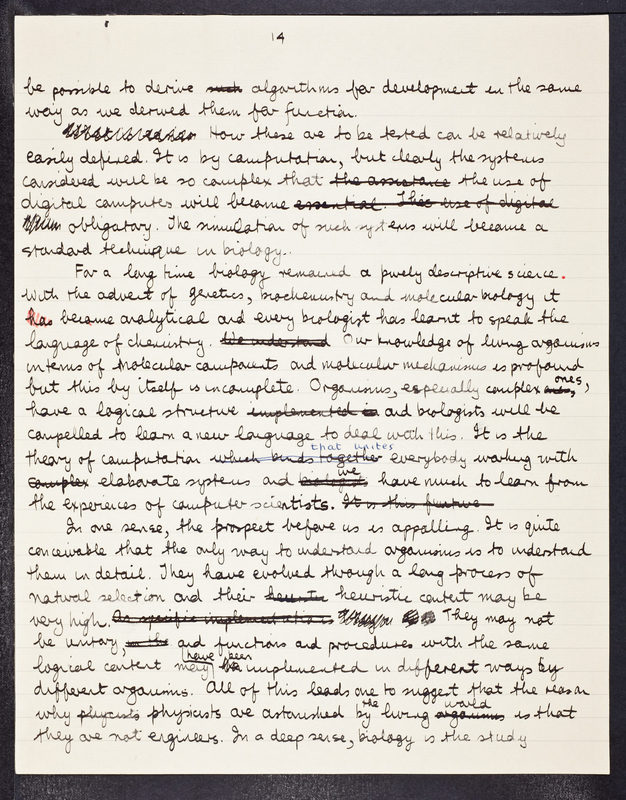 14
be possible to derive such algorithms for development in the same
way as we derived them for function.
How these are to be tested can be relatively
easily defined. It is by computation, but clearly the systems
considered will be so complex that the assistance the use of
digital computers will become essential. This use of digital
obligatory. The simulation of such systems will become a
standard technique in biology.
For a long time biology remained a purely descriptive science.
With the advent of genetics, biochemistry and molecular biology it
has became analytical and every biologist has learnt to speak the
language of chemistry. We understand Our knowledge of living organisms
in terms of molecular components and molecular mechanisms is profound
but this by itself is incomplete. Organisms, especially complex ones,
have a logical structure implemented in and biologists will be
compelled to learn a new language to deal with this. It is the
that unites
theory of computation which binds together everybody working with
complex elaborate systems and biologists we have much to learn from
the experiences of computer scientists. It is this furtive
In one sense, the prospect before us is appalling. It is quite
conceivable that the only way to understand organisms is to understand
them in detail. They have evolved through a long process of
natural selection and their heuristic content may be
very high. On specific implementations They may not
be unitary, in the and functions and procedures with the same
logical content may have been be implemented in different ways by
different organisms. All of this leads one to suggest that the reason
why physicists physicists are astonished by the living organisms world is that
they are not engineers. In a deep sense, biology is the study